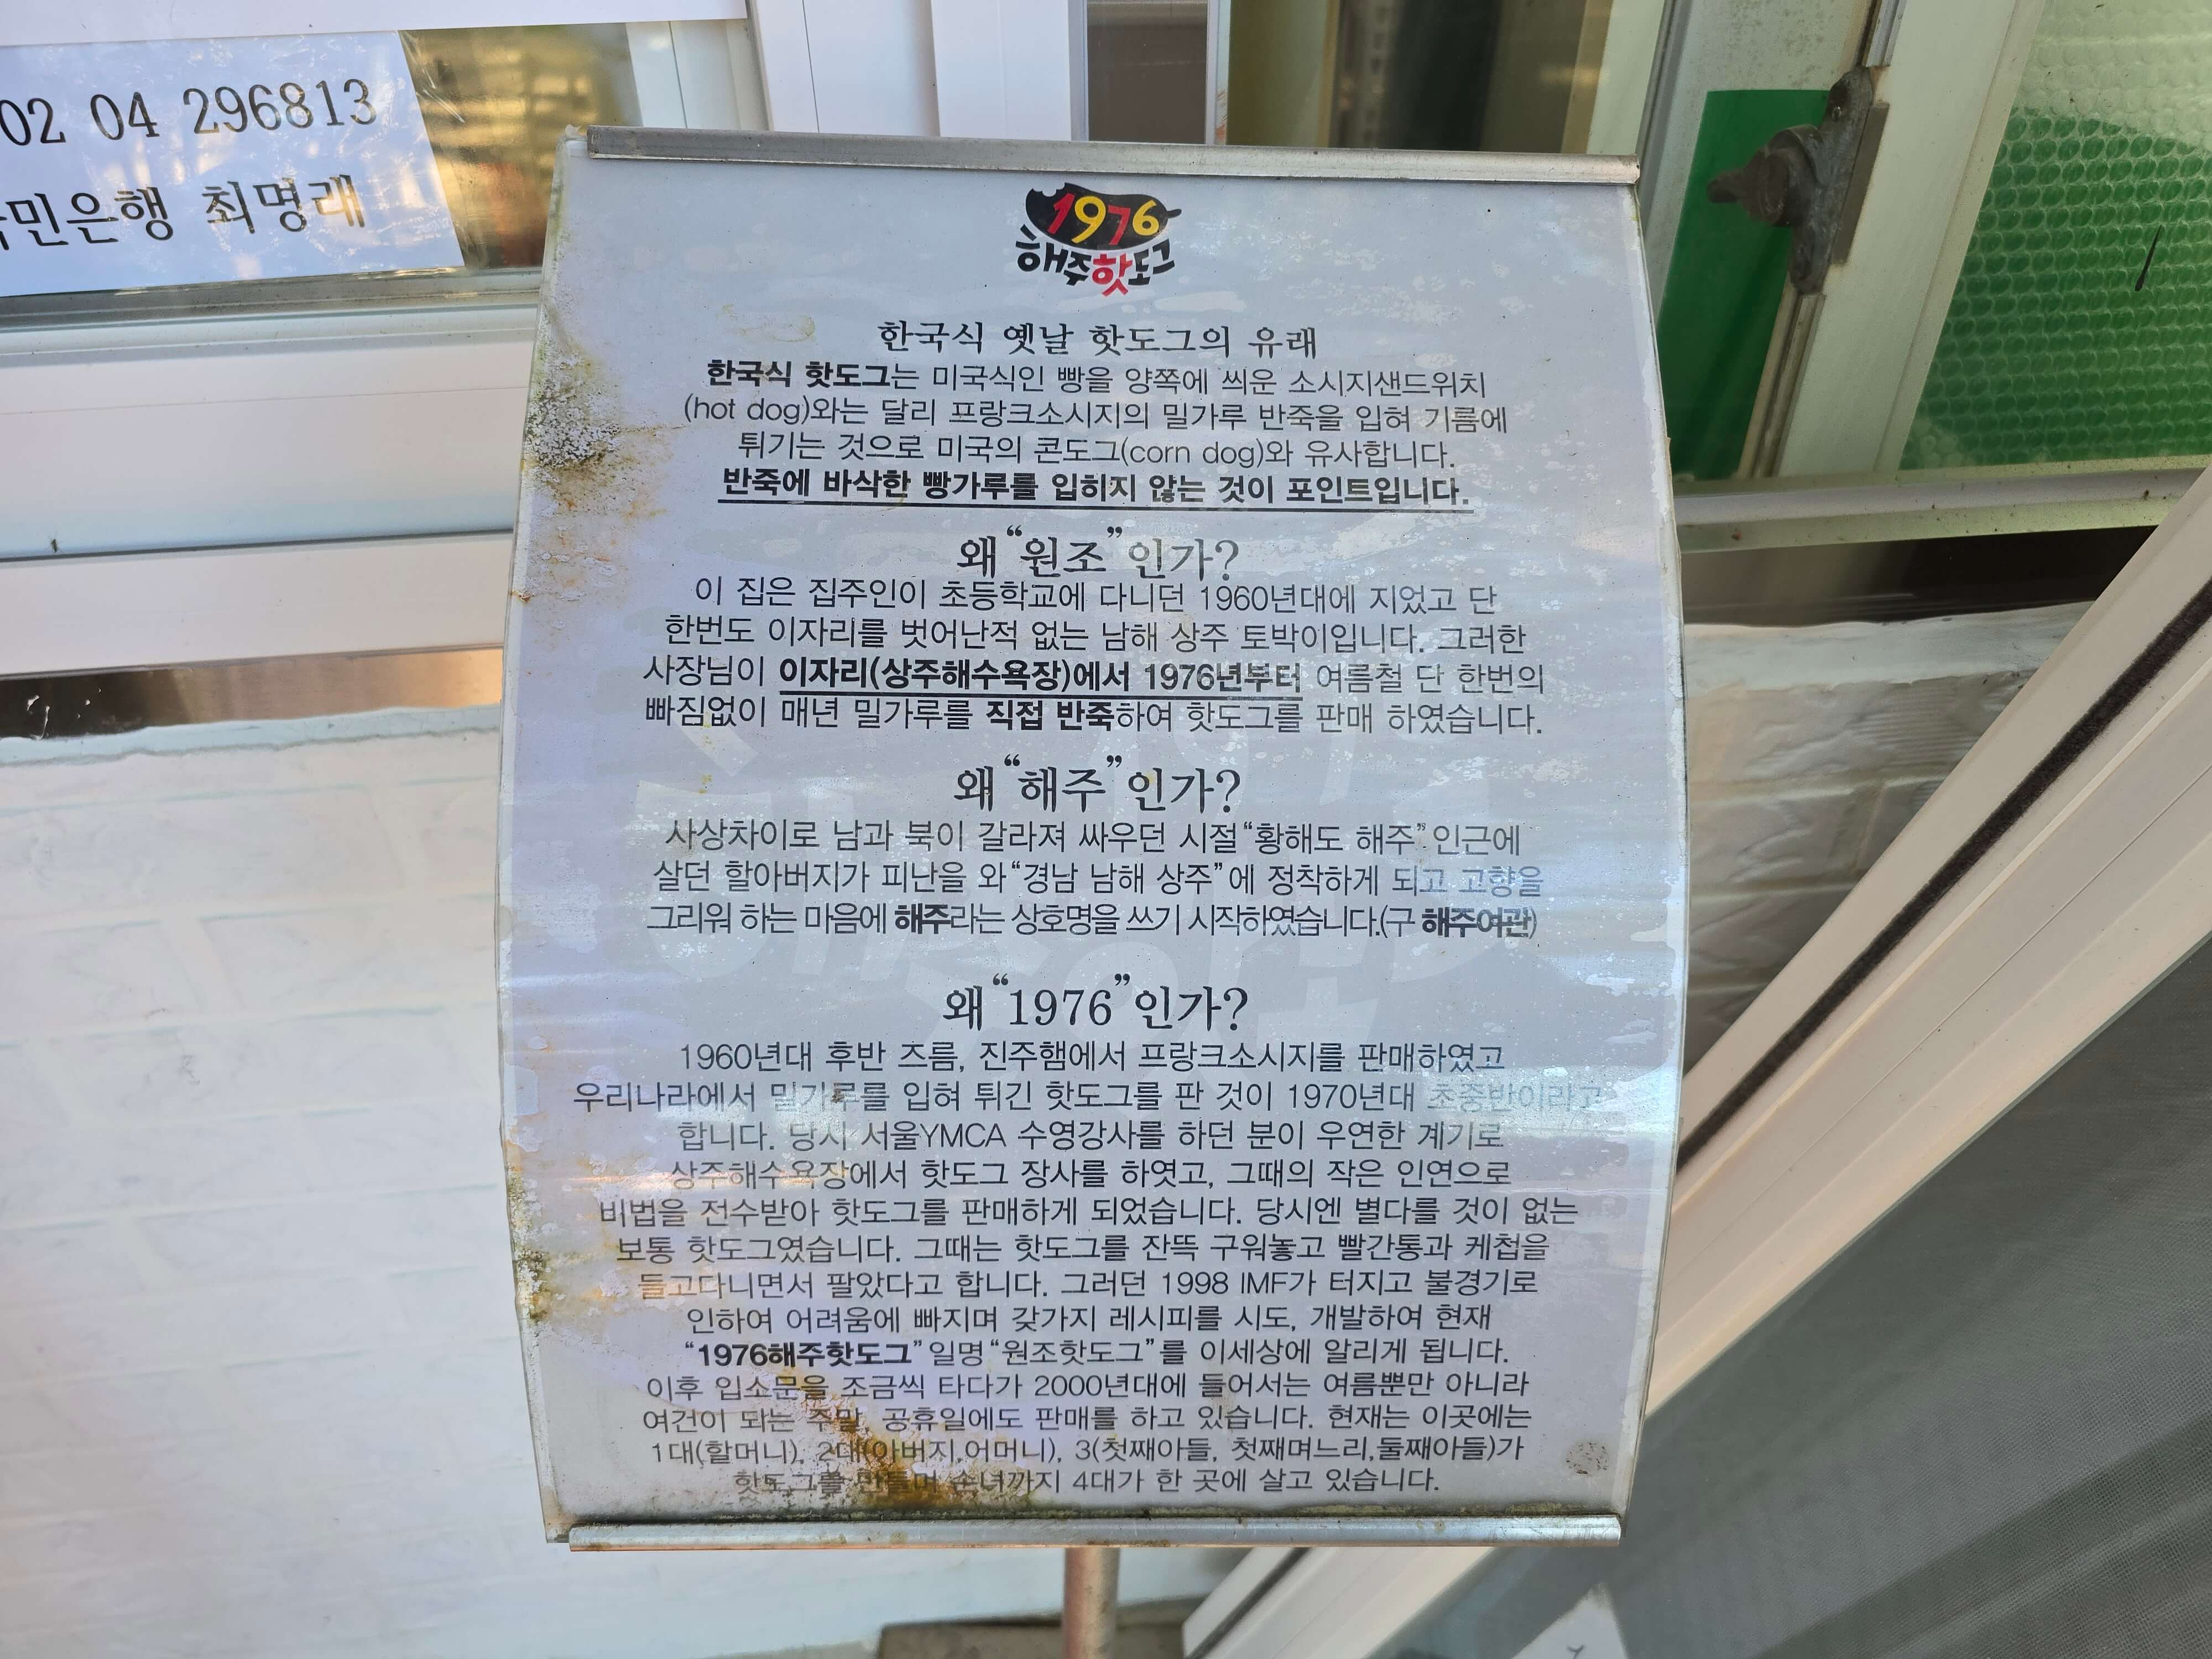 02 04 296813
민은행 최명래
1976
해주핫도그
한국식 옛날 핫도그의 유래
한국식 핫도그는 미국식인 빵을 양쪽에 씌운 소시지샌드위치
(hot dog)와는 달리 프랑크소시지의 밀가루 반죽을 입혀 기름에
튀기는 것으로 미국의 콘도그(corn dog)와 유사합니다.
반죽에 바삭한 빵가루를 입히지 않는 것이 포인트입니다.
왜 “원조” 인가?
이 집은 집주인이 초등학교에 다니던 1960년대에 지었고 단
한번도 이자리를 벗어난적 없는 남해 상주 토박이입니다. 그러한
사장님이 이자리(상주해수욕장)에서 1976년부터 여름철 단 한번의
빠짐없이 매년 밀가루를 직접 반죽하여 핫도그를 판매 하였습니다.
왜 “해주” 인가?
사상차이로 남과 북이 갈라져 싸우던 시절 “황해도 해주” 인근에
살던 할아버지가 피난을 와 “경남 남해 상주” 에 정착하게 되고 고향을
그리워 하는 마음에 해주라는 상호명을 쓰기 시작하였습니다.(구 해주여관)
왜 “1976” 인가?
1960년대 후반 즈름, 진주햄에서 프랑크소시지를 판매하였고
우리나라에서 밀가루를 입혀 튀긴 핫도그를 판 것이 1970년대 초중반이라고
합니다. 당시 서울YMCA 수영강사를 하던 분이 우연한 계기로
상주해수욕장에서 핫도그 장사를 하엿고, 그때의 작은 인연으로
비법을 전수받아 핫도그를 판매하게 되었습니다. 당시엔 별다를 것이 없는
보통 핫도그였습니다. 그때는 핫도그를 잔뜩 구워놓고 빨간통과 케첩을
들고다니면서 팔았다고 합니다. 그러던 1998 IMF가 터지고 불경기로
인하여 어려움에 빠지며 갖가지 레시피를 시도, 개발하여 현재
“1976해주핫도그” 일명 “원조핫도그” 를 이세상에 알리게 됩니다.
이후 입소문을 조금씩 타다가 2000년대에 들어서는 여름뿐만 아니라
여건이 되는 주말, 공휴일에도 판매를 하고 있습니다. 현재는 이곳에는
1대(할머니), 2대(아버지,어머니), 3(첫째아들, 첫째며느리,둘째아들)가
핫도그를 만들며 손녀까지 4대가 한 곳에 살고 있습니다.